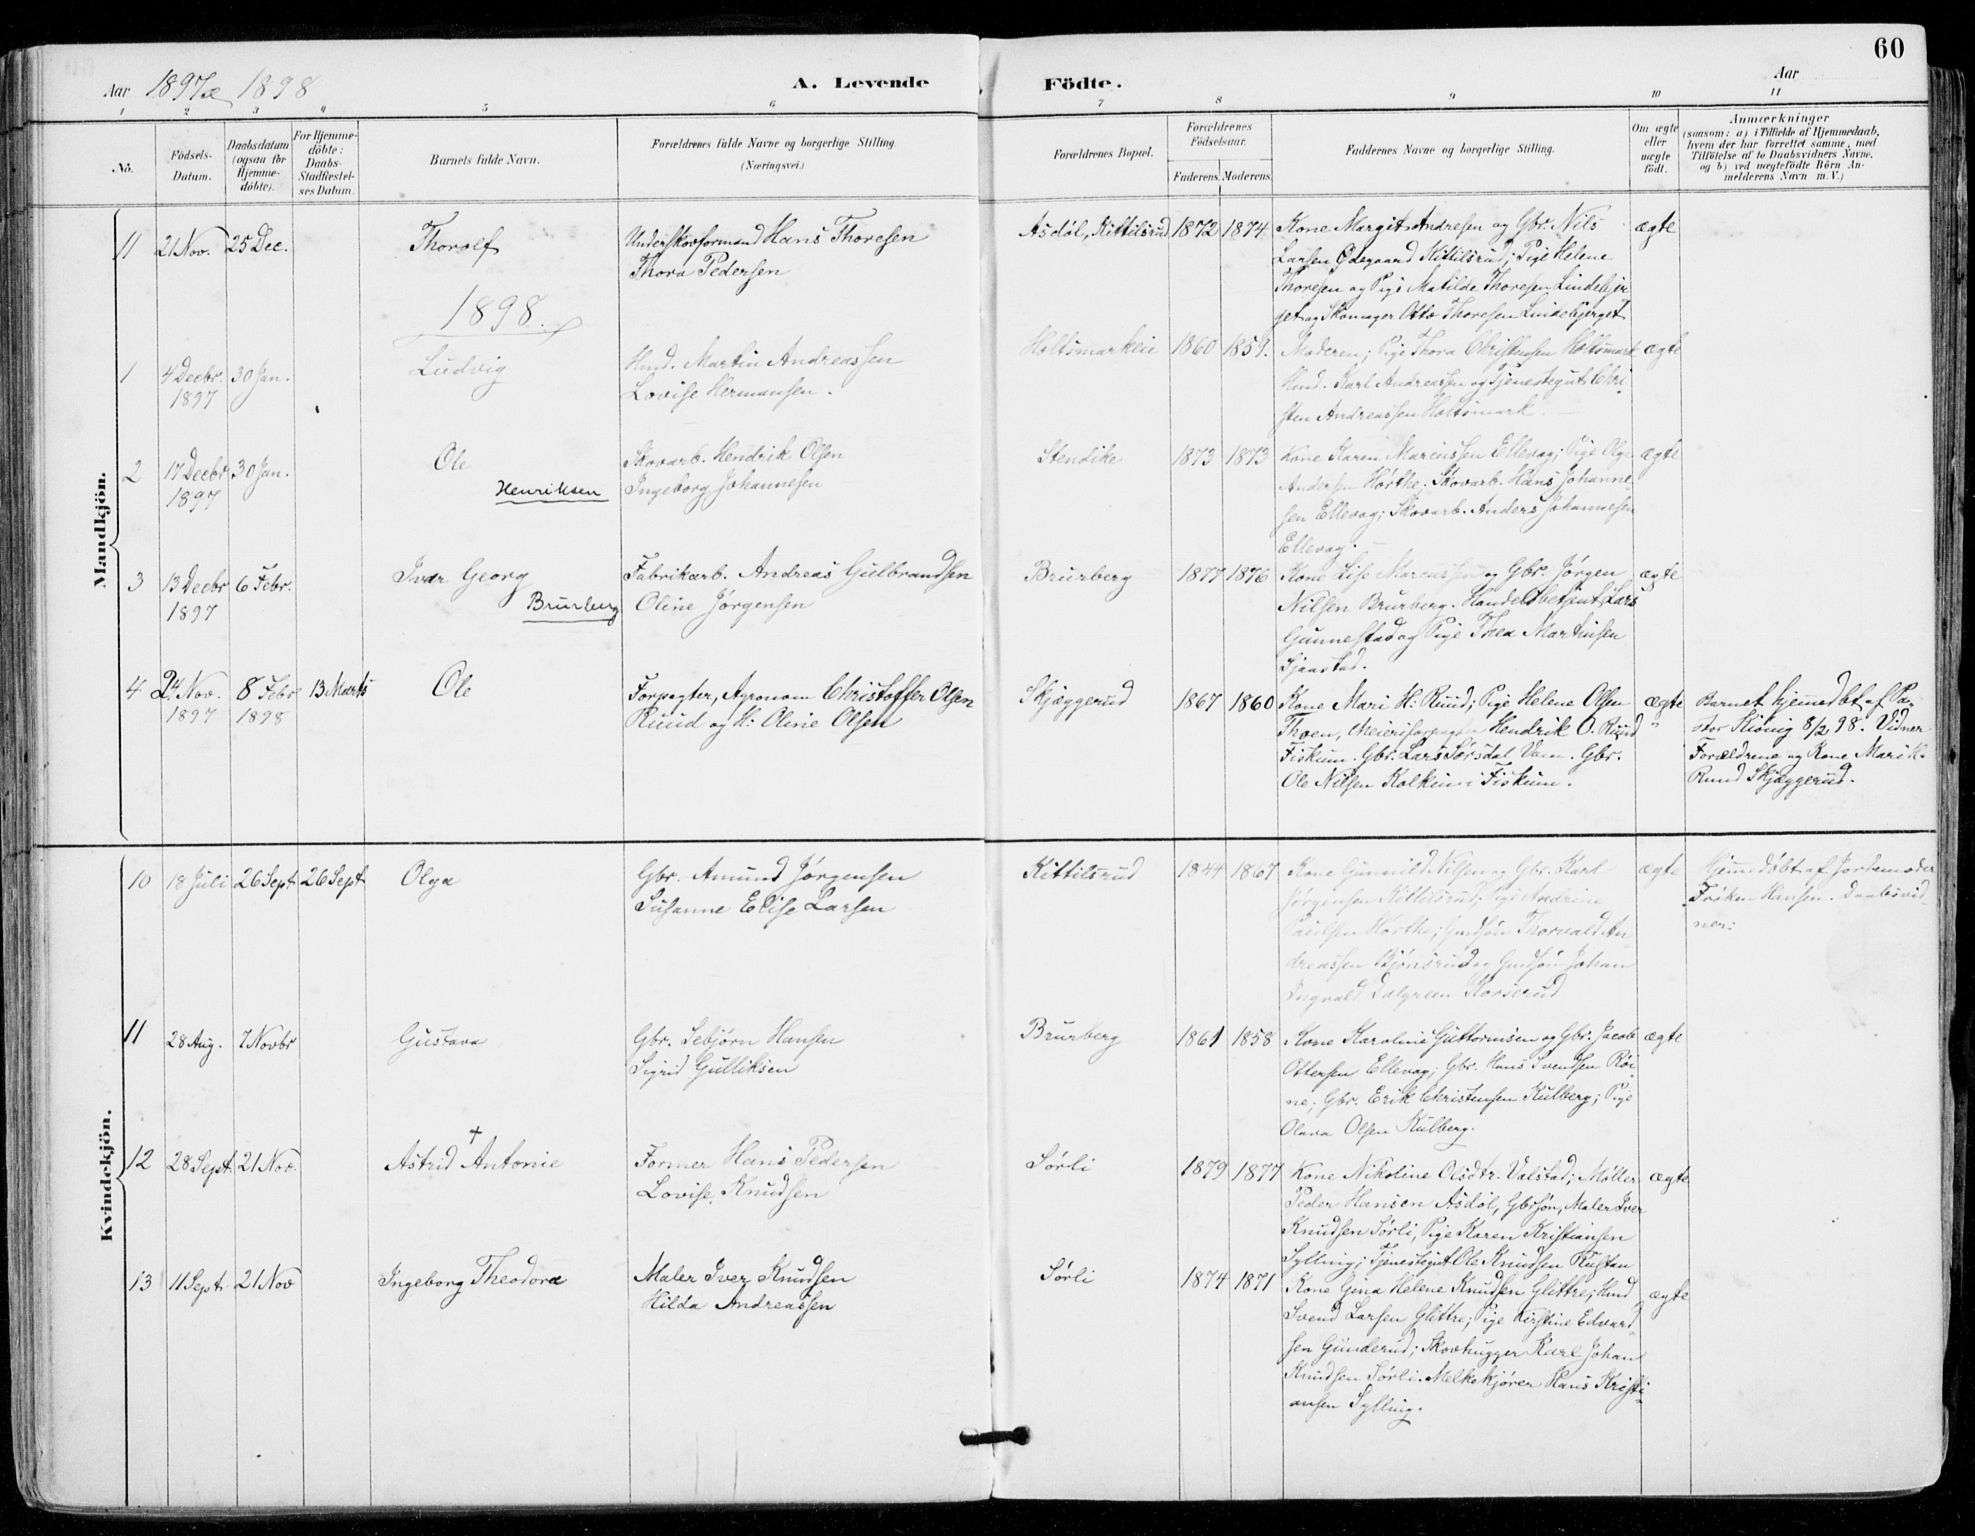 60
Aar 1897 & 1898
A. Levende Födte.
Aar
1 2 3 4 5 6 7 8 9 10 11
No.
Födsels-Datum.
Daabsdatum (ogsaa for Hjemme-döbte).
For Hjemme-döbte: Daabs-Stadfæstel-ses Datum.
Barnets fulde Navn.
Forældrenes fulde Navne og borgerlige Stilling. (Næringsvei.)
Forældrenes Bopæl.
Forældrenes Födselsaar.
Faderens. Moderens.
Faddernes Navne og borgerlige Stilling.
Om ægte eller uægte födt.
Anmærkninger
(saasom: a) i Tilfælde af Hjemmedaab, hvem der har forrettet samme, med Tilföielse af to Daabsvidners Navne, og b) ved uægtefödte Börn An-melderens Navn m. V.)
Mandkjön.
11 21 Nov. 25 Dec. Thorolf
Underskovformand Hans Thoresen
Thora Pedersen
Asdøl, Kittilsrud 1872 1874
Kone Margit Andresen og Gbr. Nils
Larsen Ødegaard Kittilsrud; Pige Helene
Thoresen og Pige Matilde Thoresen Lindebjer
get og Skomager Otto Thoresen Lindebjerget
ægte
1898.
1 4 Decbr. 1897 30 Jan. Ludvig
Hmd. Martin Andreassen
Lovise Hermansen.
Holtsmarkeie 1860 1859.
Moderen; Pige Thora Christensen Holtsmark
Hmd. Karl Andreassen og Tjenestegut Chri
sten Andreassen Holtsmark.
ægte
2 17 Decbr 1897 30 Jan. Ole
Henriksen
Skovarb. Hendrik Olsen
Ingeborg Johannesen
Stendike 1873 1873
Kone Karen Marcussen Ellevag; Pige Olga
Andersen Horthe. Skovarb. Hans Johanne-
sen Ellevag; Skovarb. Anders Johannesen
Ellevag.
ægte
3 13 Decbr 1897 6 Febr. Ivar Georg
Brurberg
Fabrikarb. Andreas Gulbrandsen
Oline Jørgensen
Brurberg 1877 1876
Kone Lise Marcussen og Gbr. Jørgen
Nilsen Brurberg. Handelsbetjent Lars
Gunnestad og Pige Thea Martinsen
Sjaastad.
ægte
4 24 Nov. 1897 8 Febr 1898 13 Marts Ole
Forpagter, Agronom Christoffer Olsen
Ruud og H: Oline Olsen
Skjæggerud 1867 1860
Kone Mari H. Ruud; Pige Helene Olsen
Thoen, Meieriforpagter Hendrik O. Ruud
Fiskum. Gbr. Lars Sørsdal . Gbr.
Ole Nilsen Kolkin i Fiskum.
ægte
"
Barnet hjemmedbt af Pa-
stor Kionig 8/2 98. Vidner
Forældrene og Kone Mari H.
Ruud Skjæggerud.
Kvindekjön.
10 18 Juli 26 Sept 26 Sept Olga
Gbr. Amund Jørgensen
Susanne Elise Larsen
Kittilsrud 1844 1867
Kone Gunnild Nilsen og Gbr. Karl
Jörgensen Kittilsrud; Pige Andrine
Paulsen Horthe; Gmdsön Thorvald An-
dreassen Skjönsrud og Gmdsön Johan
Ingvald Dalgreen Korserud
ægte
Hjemmdöbt af Jordemoder
Frøken Hansen. Daabsvid-
ner:
11 28 Aug. 7 Novbr Gustava
Gbr. Sebjørn Hansen
Sigrid Gulliksen
Brurberg 1861 1858
Kone Karoline Guttormsen og Gbr. Jacob
Ottersen Ellevag; Gbr. Hans Svendsen Röi-
ne; Gbr. Erik Christensen Kulberg; Pige
Olava Olsen Kulberg.
ægte
12 28 Sept. 21 Nov. Astrid + Antonie
Former Hans Pedersen
Lovise Knudsen
Sørli 1879 1877
Kone Nikoline Olsdtr. Valstad; Møller
Peder Hansen Asdøl, Gbrsøn, Maler Iver
Knudsen Sørli, Pige Karen Kristiansen
Sylling; Tjenestegut Ole Knudsen Rustan
ægte
13 11 Sept. 21 Nov Ingeborg Theodora
Maler Iver Knudsen
Hilda Andreassen
Sørli 1874 1871
Kone Gina Helene Knudsen Glittre; Hmd
Svend Larsen Glittre; Pige Kirstine Edvard
sen Gunderud; Skovhugger Karl Johan
Knudsen Sørli. Melkekjører Hans Kristi-
ansen Sylling.
ægte